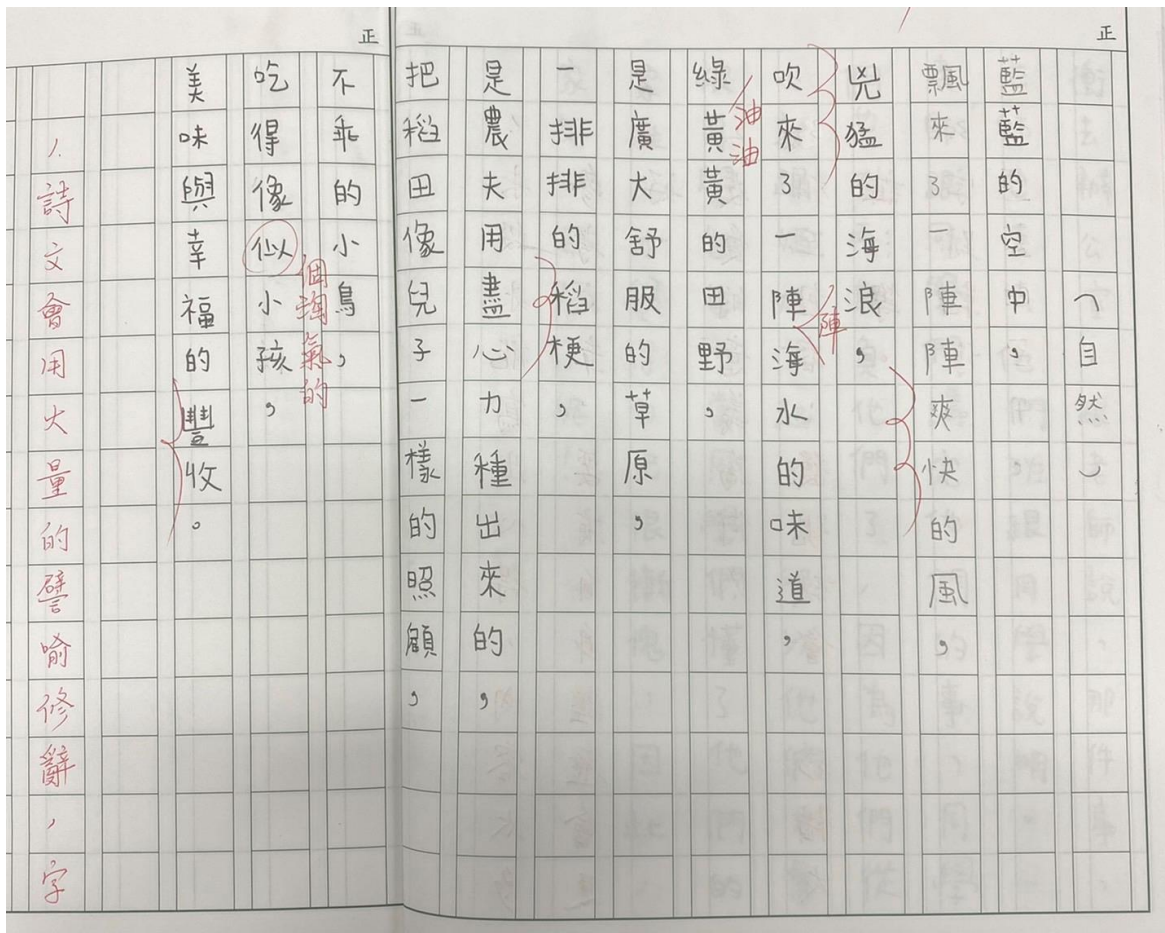 正
（自然）
藍藍的空中，
飄來了一陣陣爽快的風，
兇猛的海浪，
吹來了一陣海水的味道，
陣
綠黃黃的田野，
油油
是廣大舒服的草原，
一排排的稻梗，
是農夫用盡心力種出來的，
把稻田像兒子一樣的照顧，
正
不乖的小鳥，
個淘氣的
吃得像似小孩，
美味與幸福的豐收。
1.詩文會用大量的譬喻修辭，字